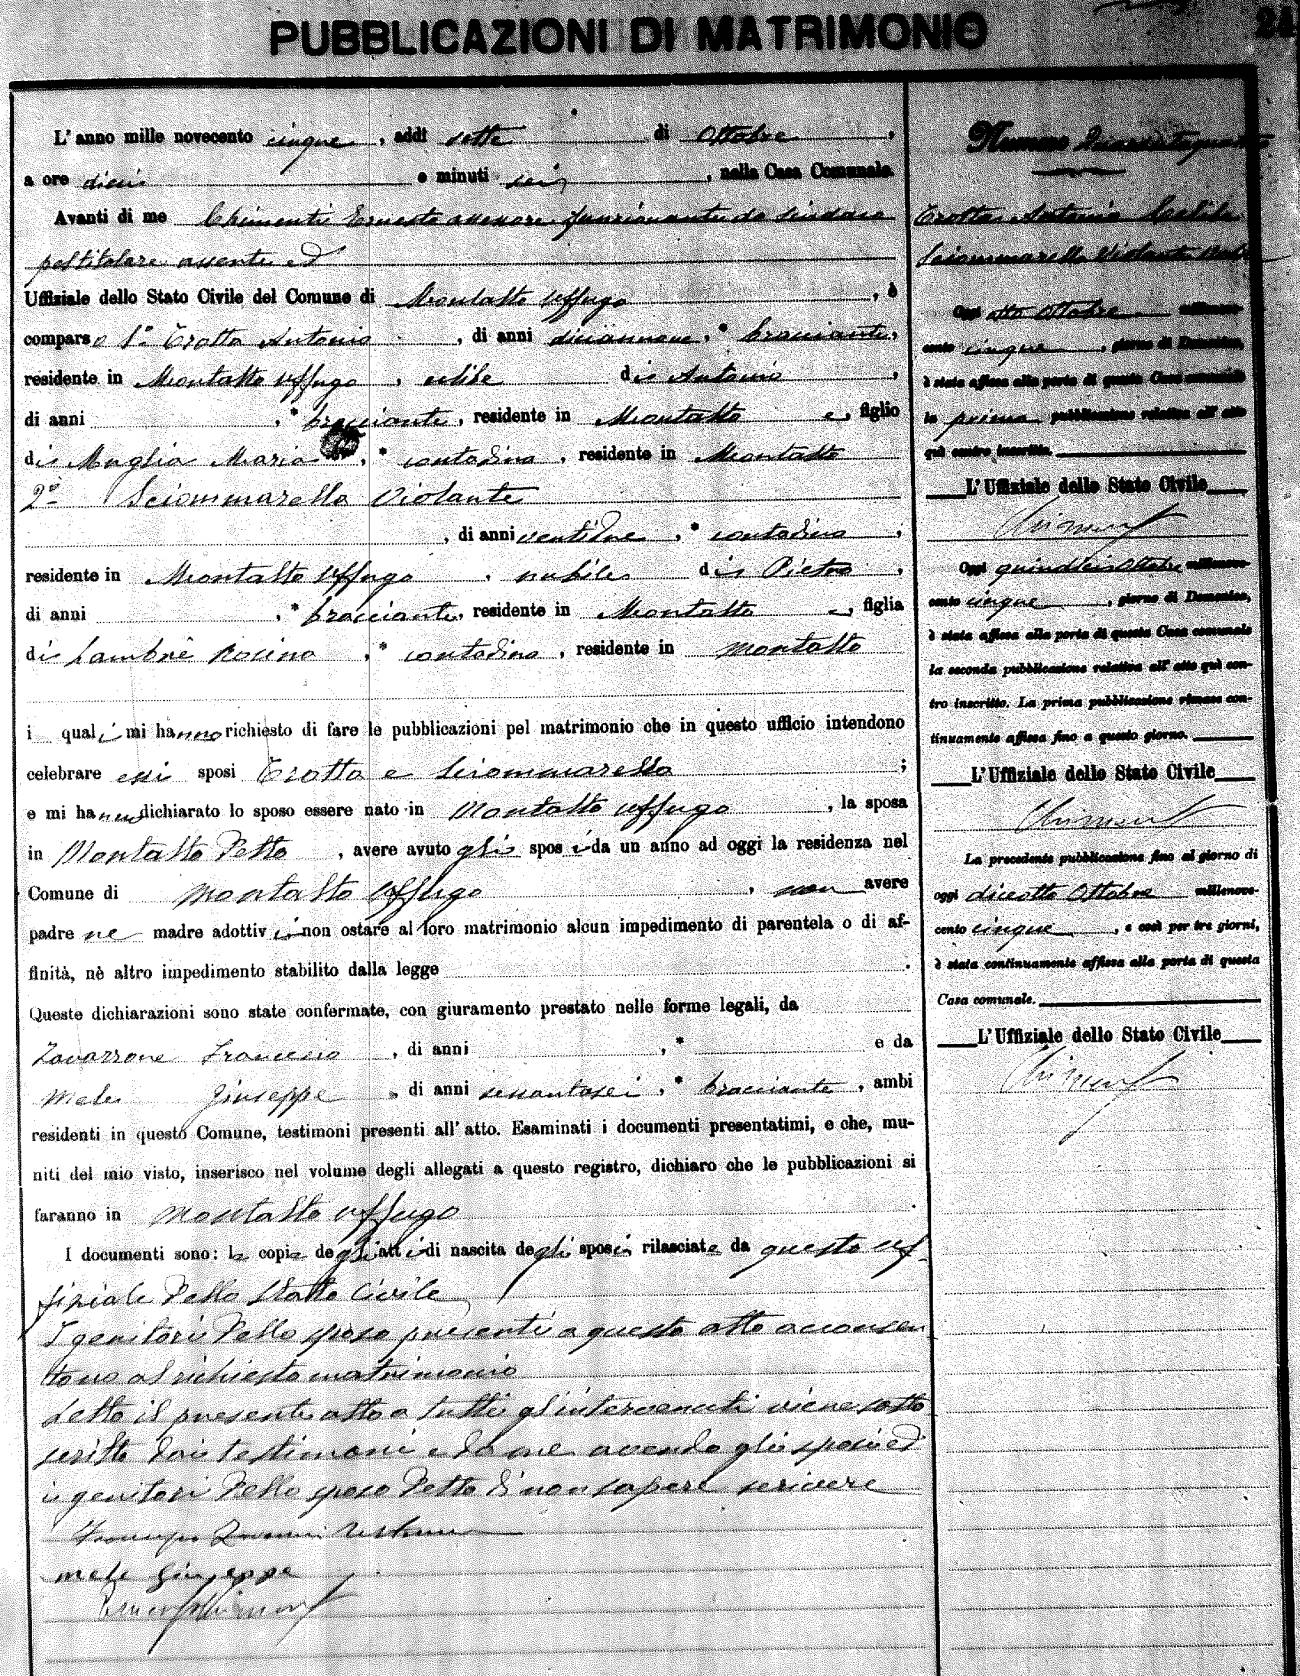 PUBBLICAZIONI DI MATRIMONIO
24
L'anno mille novecento cinque, addì sette di Ottobre,
a ore dieci e minuti sei, nella Casa Comunale.
Avanti di me Chimenti Ernesto assessore funzionante da sindaco
pel titolare assente ed
Uffiziale dello Stato Civile del Comune di Montalto Uffugo, è
comparso 1º Trotta Antonio, di anni diciannove, * bracciante,
residente in Montalto Uffugo, celibe di Antonio,
di anni , * bracciante, residente in Montalto e, figlio
di Muglia Maria, * contadina, residente in Montalto
2º Sciommarella Violante
, di anni ventidue, * contadina,
residente in Montalto Uffugo, nubile di Pietro,
di anni , * bracciante, residente in Montalto e, figlia
di Lambrè Rosina, * contadina, residente in Montalto
i quali mi hanno richiesto di fare le pubblicazioni pel matrimonio che in questo ufficio intendono
celebrare essi sposi Trotta e Sciommarella;
e mi hanno dichiarato lo sposo essere nato in Montalto Uffugo, la sposa
in Montalto detto, avere avuto gli sposi da un anno ad oggi la residenza nel
Comune di Montalto Uffugo, non avere
padre ne madre adottivi non ostare al loro matrimonio alcun impedimento di parentela o di af-
finità, nè altro impedimento stabilito dalla legge.
Queste dichiarazioni sono state confermate, con giuramento prestato nelle forme legali, da
Zavarrone Francesco, di anni , * e da
Mele Giuseppe, di anni sessantasei, * bracciante, ambi
residenti in questo Comune, testimoni presenti all'atto. Esaminati i documenti presentatimi, e che, mu-
niti del mio visto, inserisco nel volume degli allegati a questo registro, dichiaro che le pubblicazioni si
faranno in Montalto Uffugo.
I documenti sono: le copie degli atti di nascita degli sposi rilasciate da questo uf-
fiziale dello Stato Civile
I genitori dello sposo presenti a questo atto acconsen
tono al richiesto matrimonio
Letto il presente atto a tutti gl'intervenuti viene sotto
scritto dai testimoni e da me avendo gli sposi ed
i genitori dello sposo detto di non sapere scrivere
mele Giuseppe
Numero Quarantaquattro
Trotta Antonio celibe
Sciommarella Violante nubile
Oggi otto Ottobre millenove-
cento cinque, giorno di Domenica,
è stata affissa alla porta di questa Casa comunale
la prima pubblicazione relativa all'atto
quì contro inscritto.
L'Uffiziale dello Stato Civile
Chimenti
Oggi quindici Ottobre millenove-
cento cinque, giorno di Domenica,
è stata affissa alla porta di questa Casa comunale
la seconda pubblicazione relativa all'atto quì con-
tro inscritto. La prima pubblicazione rimase con-
tinuamente affissa fino a questo giorno.
L'Uffiziale dello Stato Civile
Chimenti
La precedente pubblicazione fino al giorno di
oggi diciotto Ottobre millenove-
cento cinque, e così per tre giorni,
è stata continuamente affissa alla porta di questa
Casa comunale.
L'Uffiziale dello Stato Civile
Chimenti